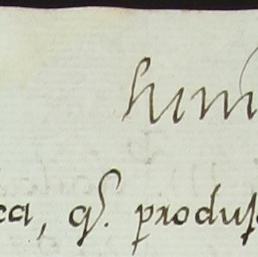 hum
ca, q. produj